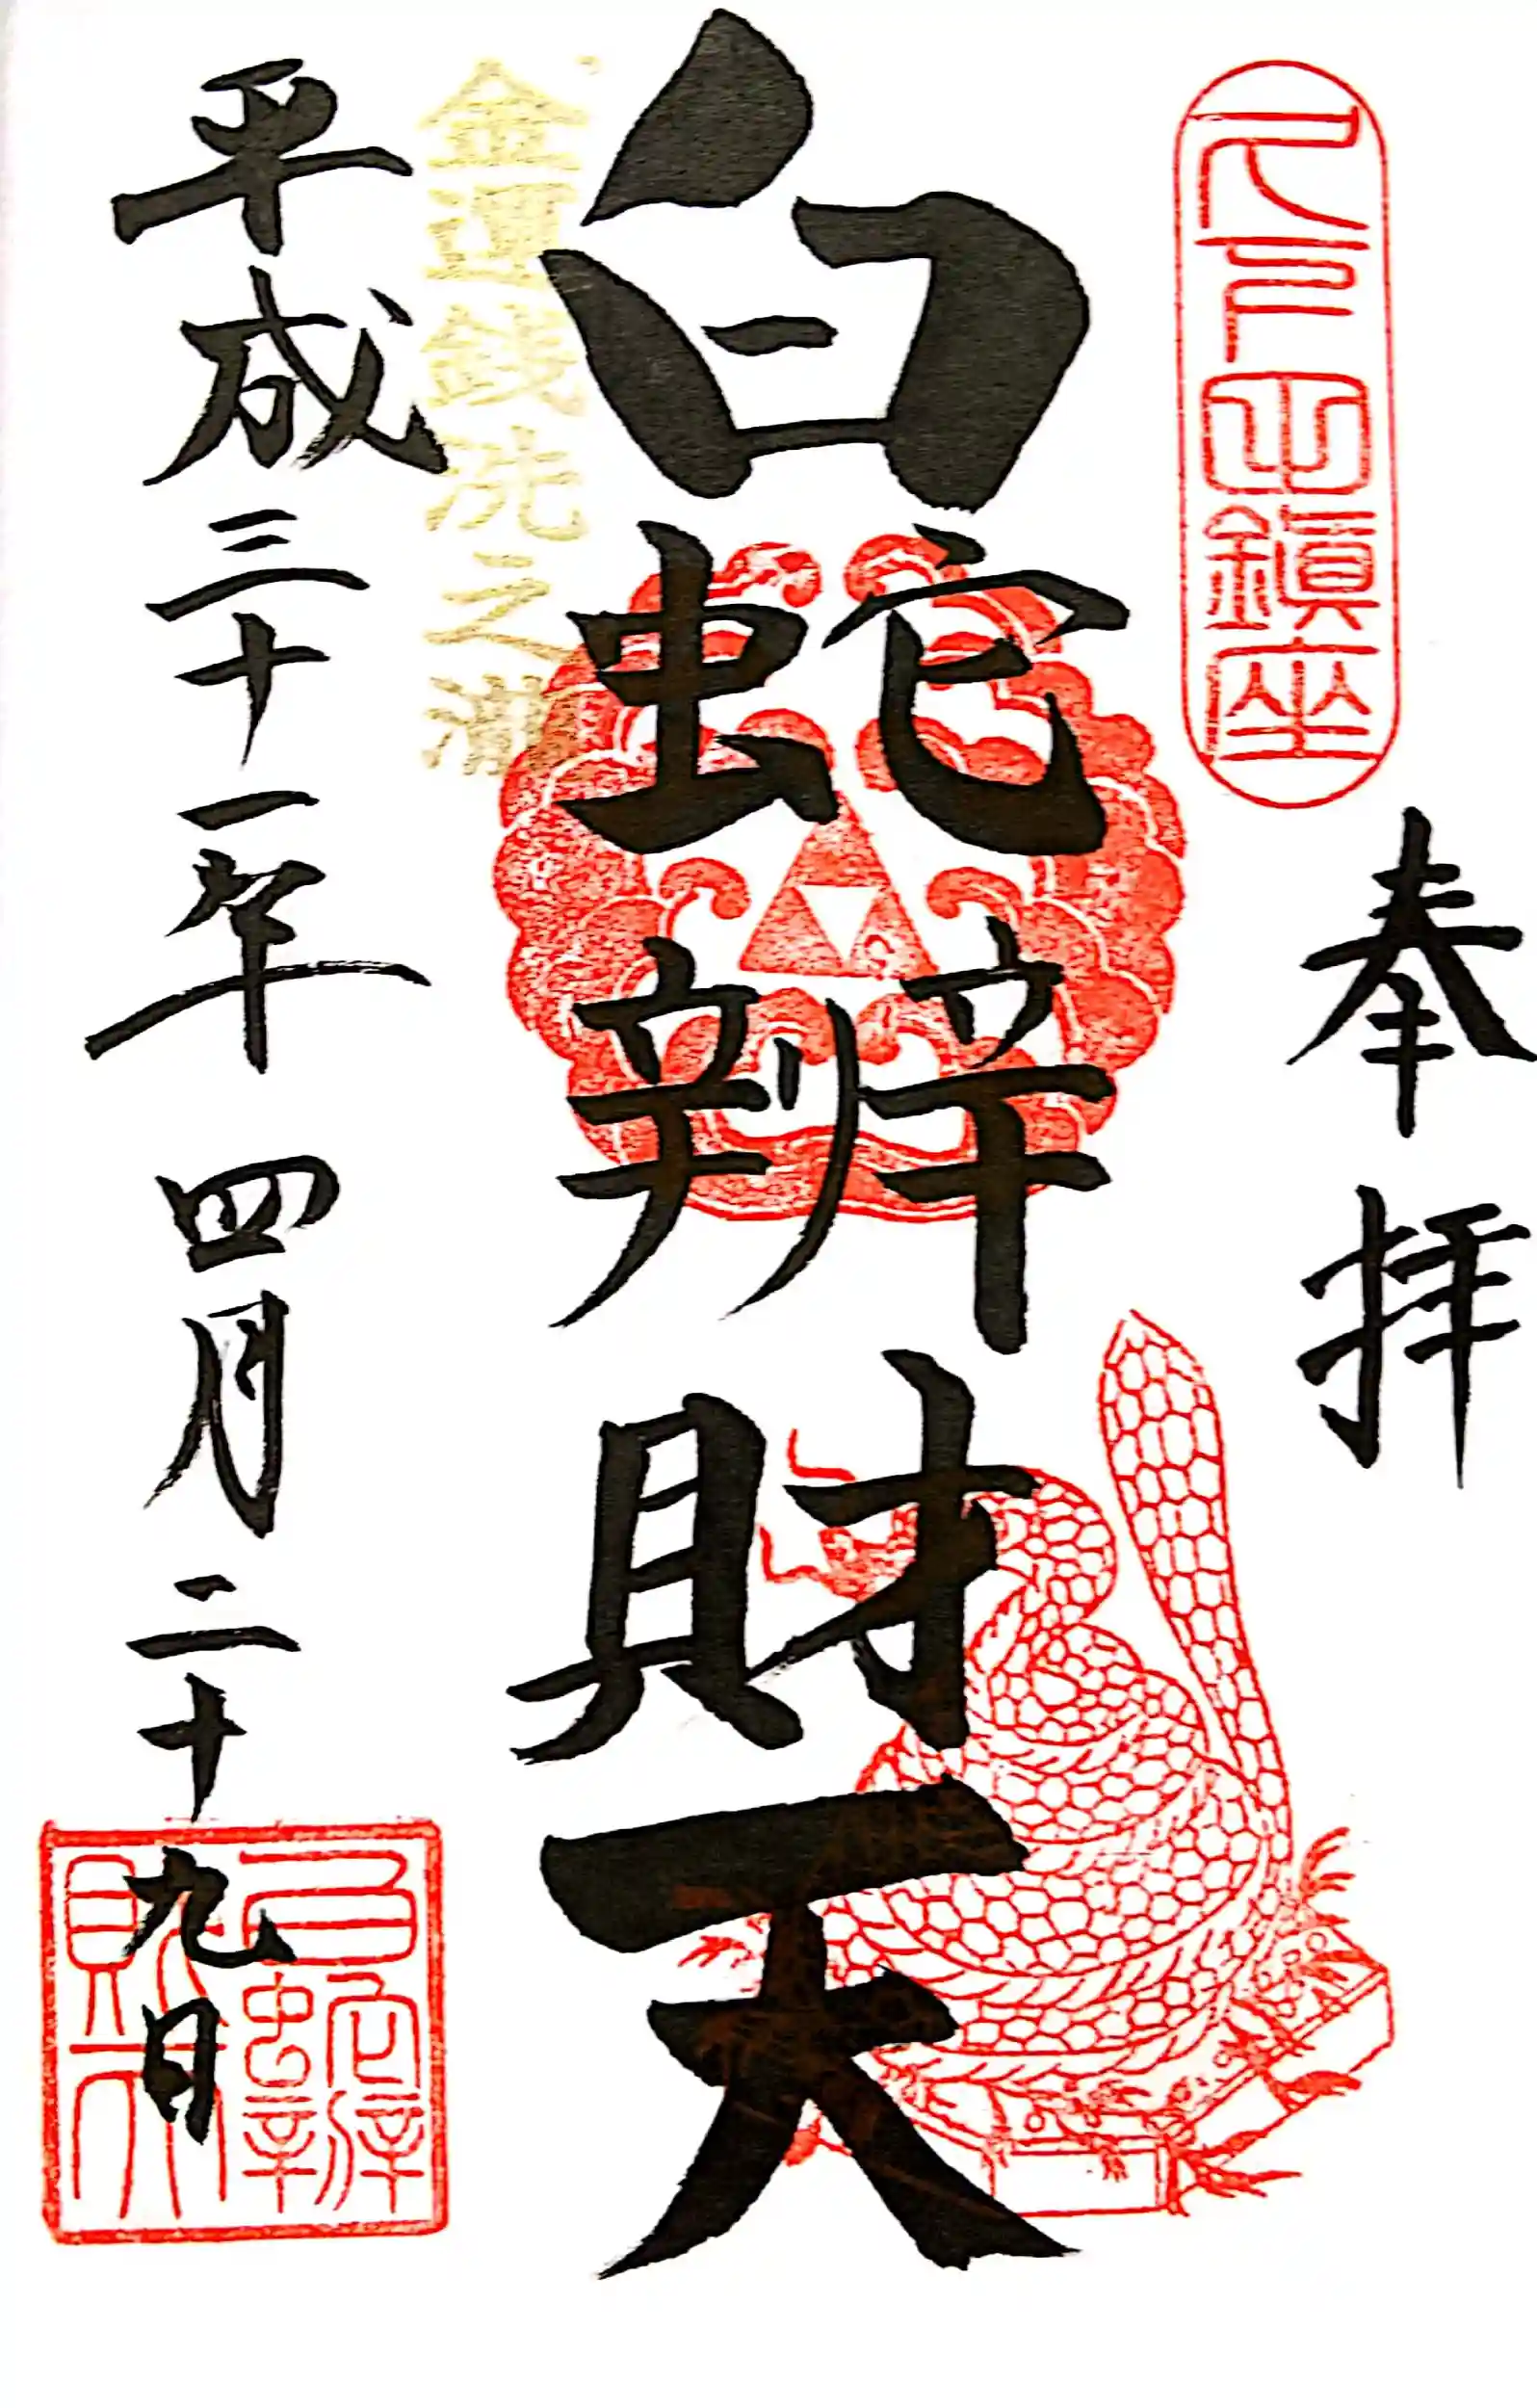 尺戸山鎮座
奉拝
白蛇辨財天
金運銭洗之滝
平成三十一年四月二十九日
白蛇辨財天